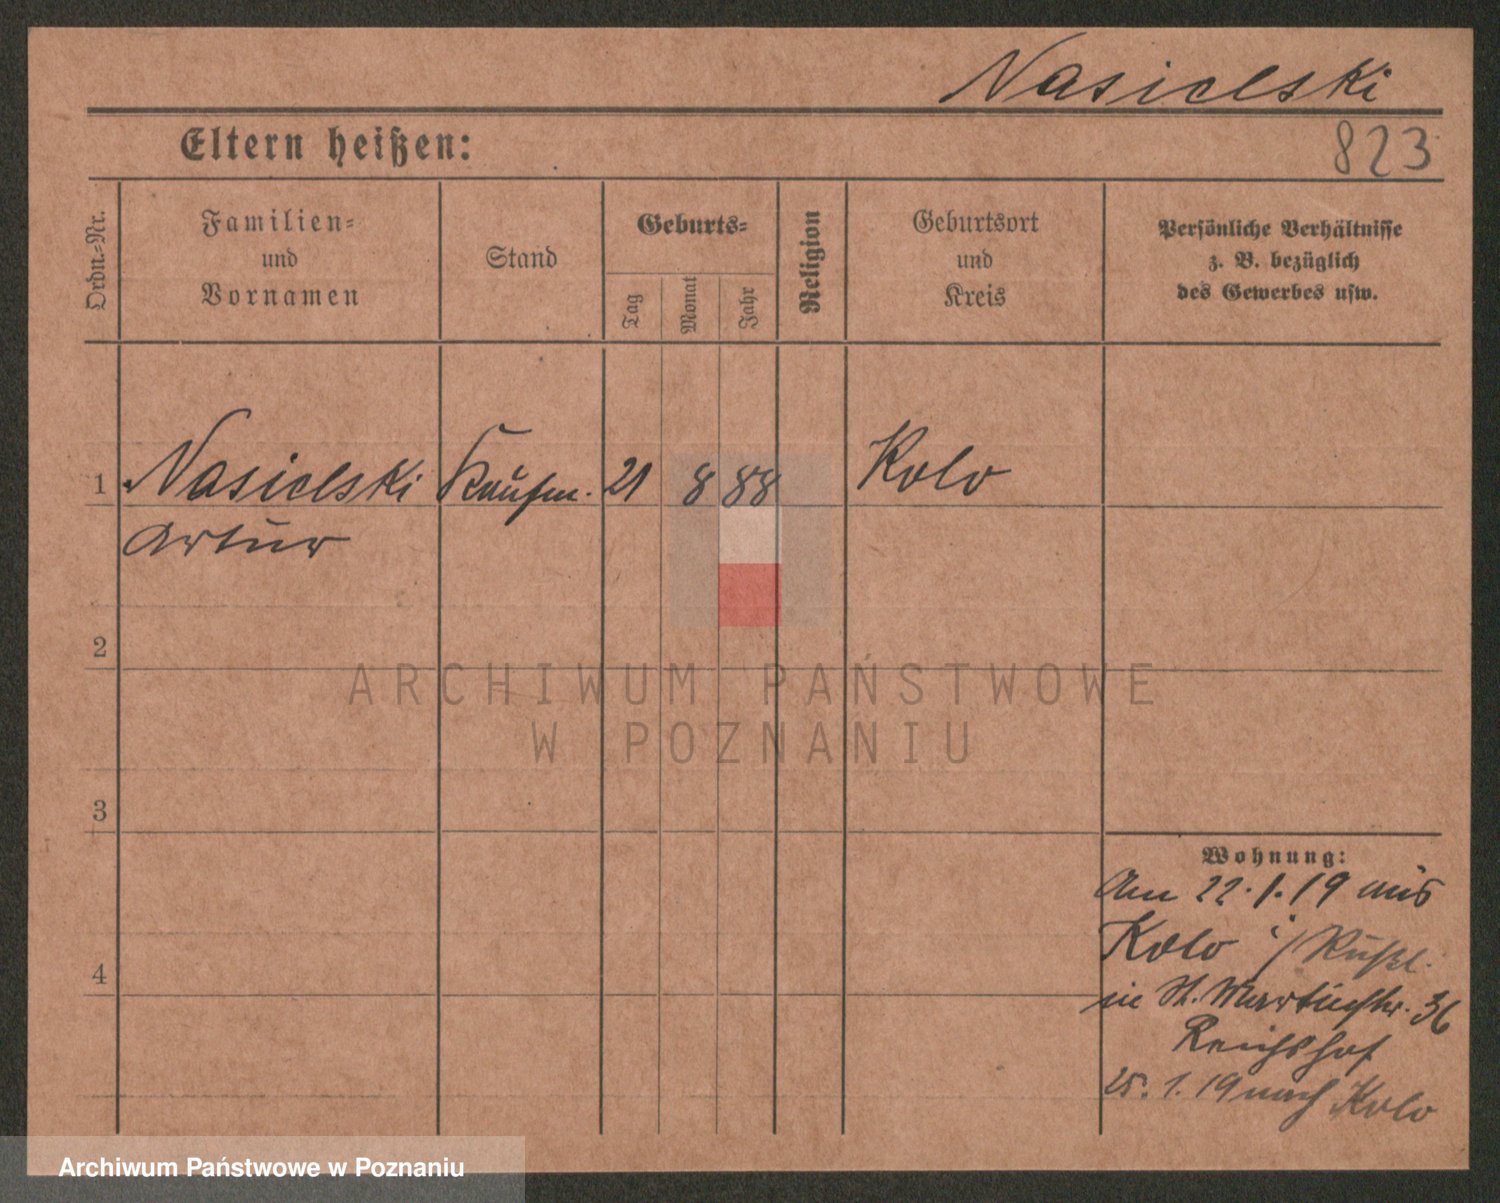 Nasielski
Eltern heißen:
823
Ordn.-Nr.
Familien-
und
Vornamen
Stand
Geburts-
Tag
Monat
Jahr
Religion
Geburtsort
und
Kreis
Persönliche Verhältnisse
z. B. bezüglich
des Gewerbes usw.
1 Nasielski Kaufm. 21 8 88 Kolo
Artur
2
ARCHIWUM PAŃSTWOWE
W POZNANIU
3
Wohnung:
Am 22.1.19 aus
Kolo i/Rußl.
in St. Martinstr. 36
4
Reichshof
25.1.19 nach Kolo
Archiwum Państwowe w Poznaniu